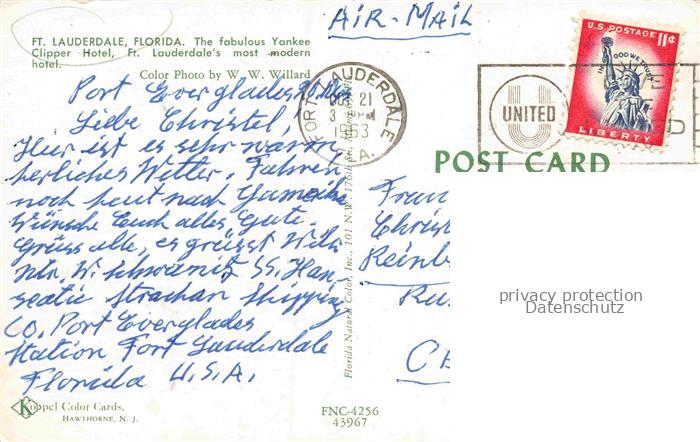 AIR-MAIL
FT. LAUDERDALE, FLORIDA. The fabulous Yankee
Clipper Hotel, Ft. Lauderdale's most modern
hotel.
Color Photo by W. W. Willard
Port Everglades
Liebe Christel!
Hier ist es sehr warm
herliches Wetter. Fahren
noch heut nach
Wünsche Euch alles Gute.
Grüss alle, es grüsst Willi
W. Schwanitz SS. Han-
seatic Strachan Shipping
Co. Port Everglades
Station Fort Lauderdale
Florida U.S.A.
Koppel Color Cards.
HAWTHORNE, N. J.
Florida Natural Color, Inc., 101 N.W. 176th St.
FNC-4256
43967
FORT LAUDERDALE
21
3 PM
1963
UNITED
U.S. POSTAGE 11¢
IN GOD WE TRUST
LIBERTY
POST CARD
privacy protection
Datenschutz